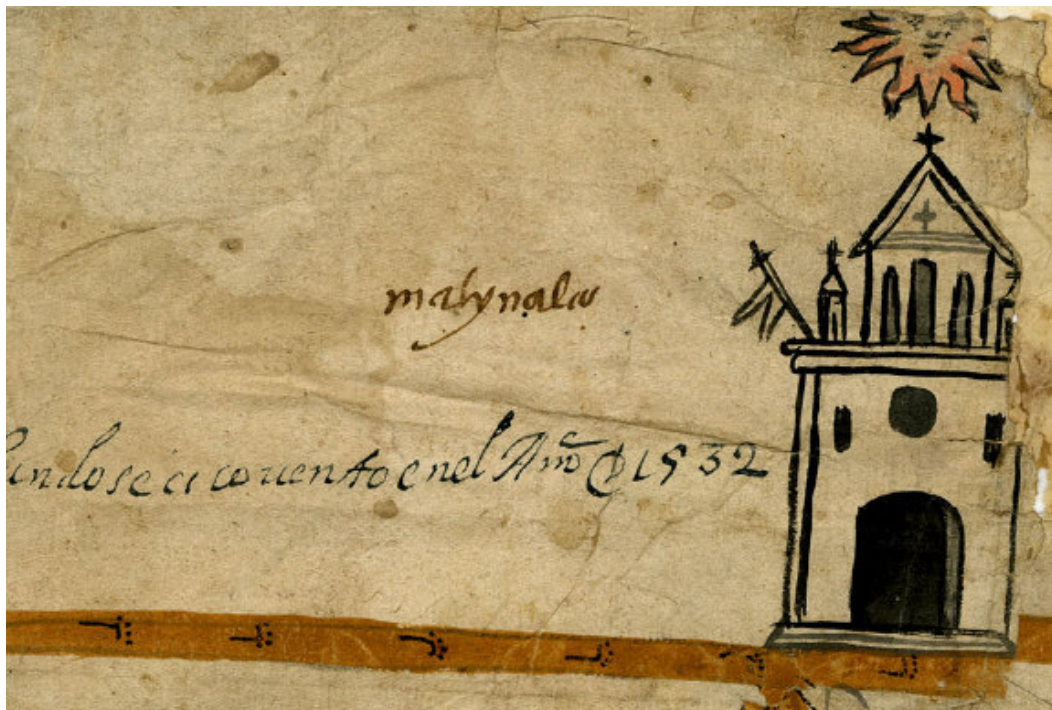 malynalco
fundose el conuento enel Año de 1532